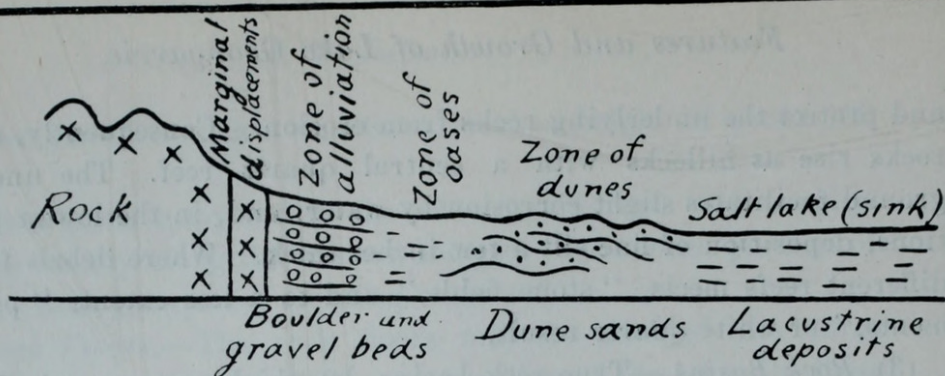 Marginal
displacements
Zone of
alluviation
Zone of
oases
Zone of
dunes
Rock
Salt lake (sink)
Boulder and
gravel beds
Dune sands
Lacustrine
deposits